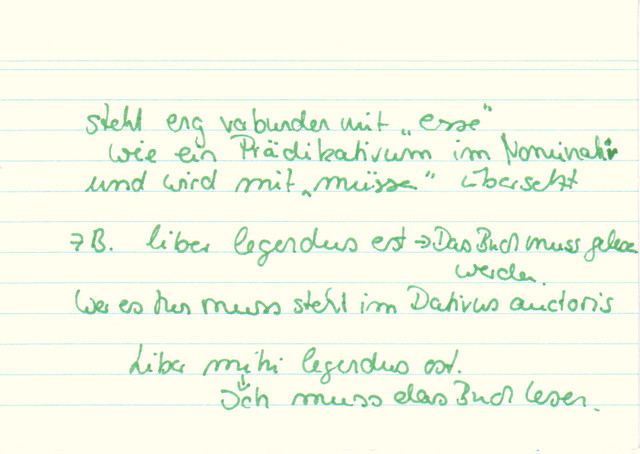 steht eng verbunden mit „esse"
wie ein Prädikativum im Nominativ
und wird mit „müssen" übersetzt
z B. liber legendus est → Das Buch muss gelesen
werden.
Wer es tun muss steht im Dativus auctoris
Liber mihi legendus est.
↓
Ich muss das Buch lesen.